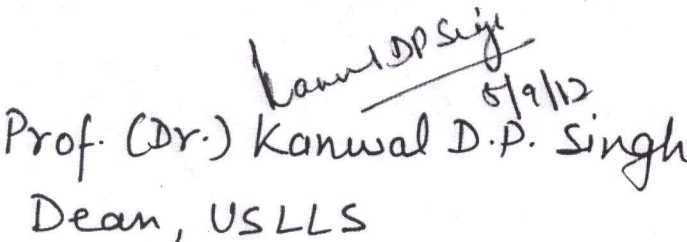 Kanwal DP Singh
5/9/12
Prof. (Dr.) Kanwal D.P. Singh
Dean, USLLS